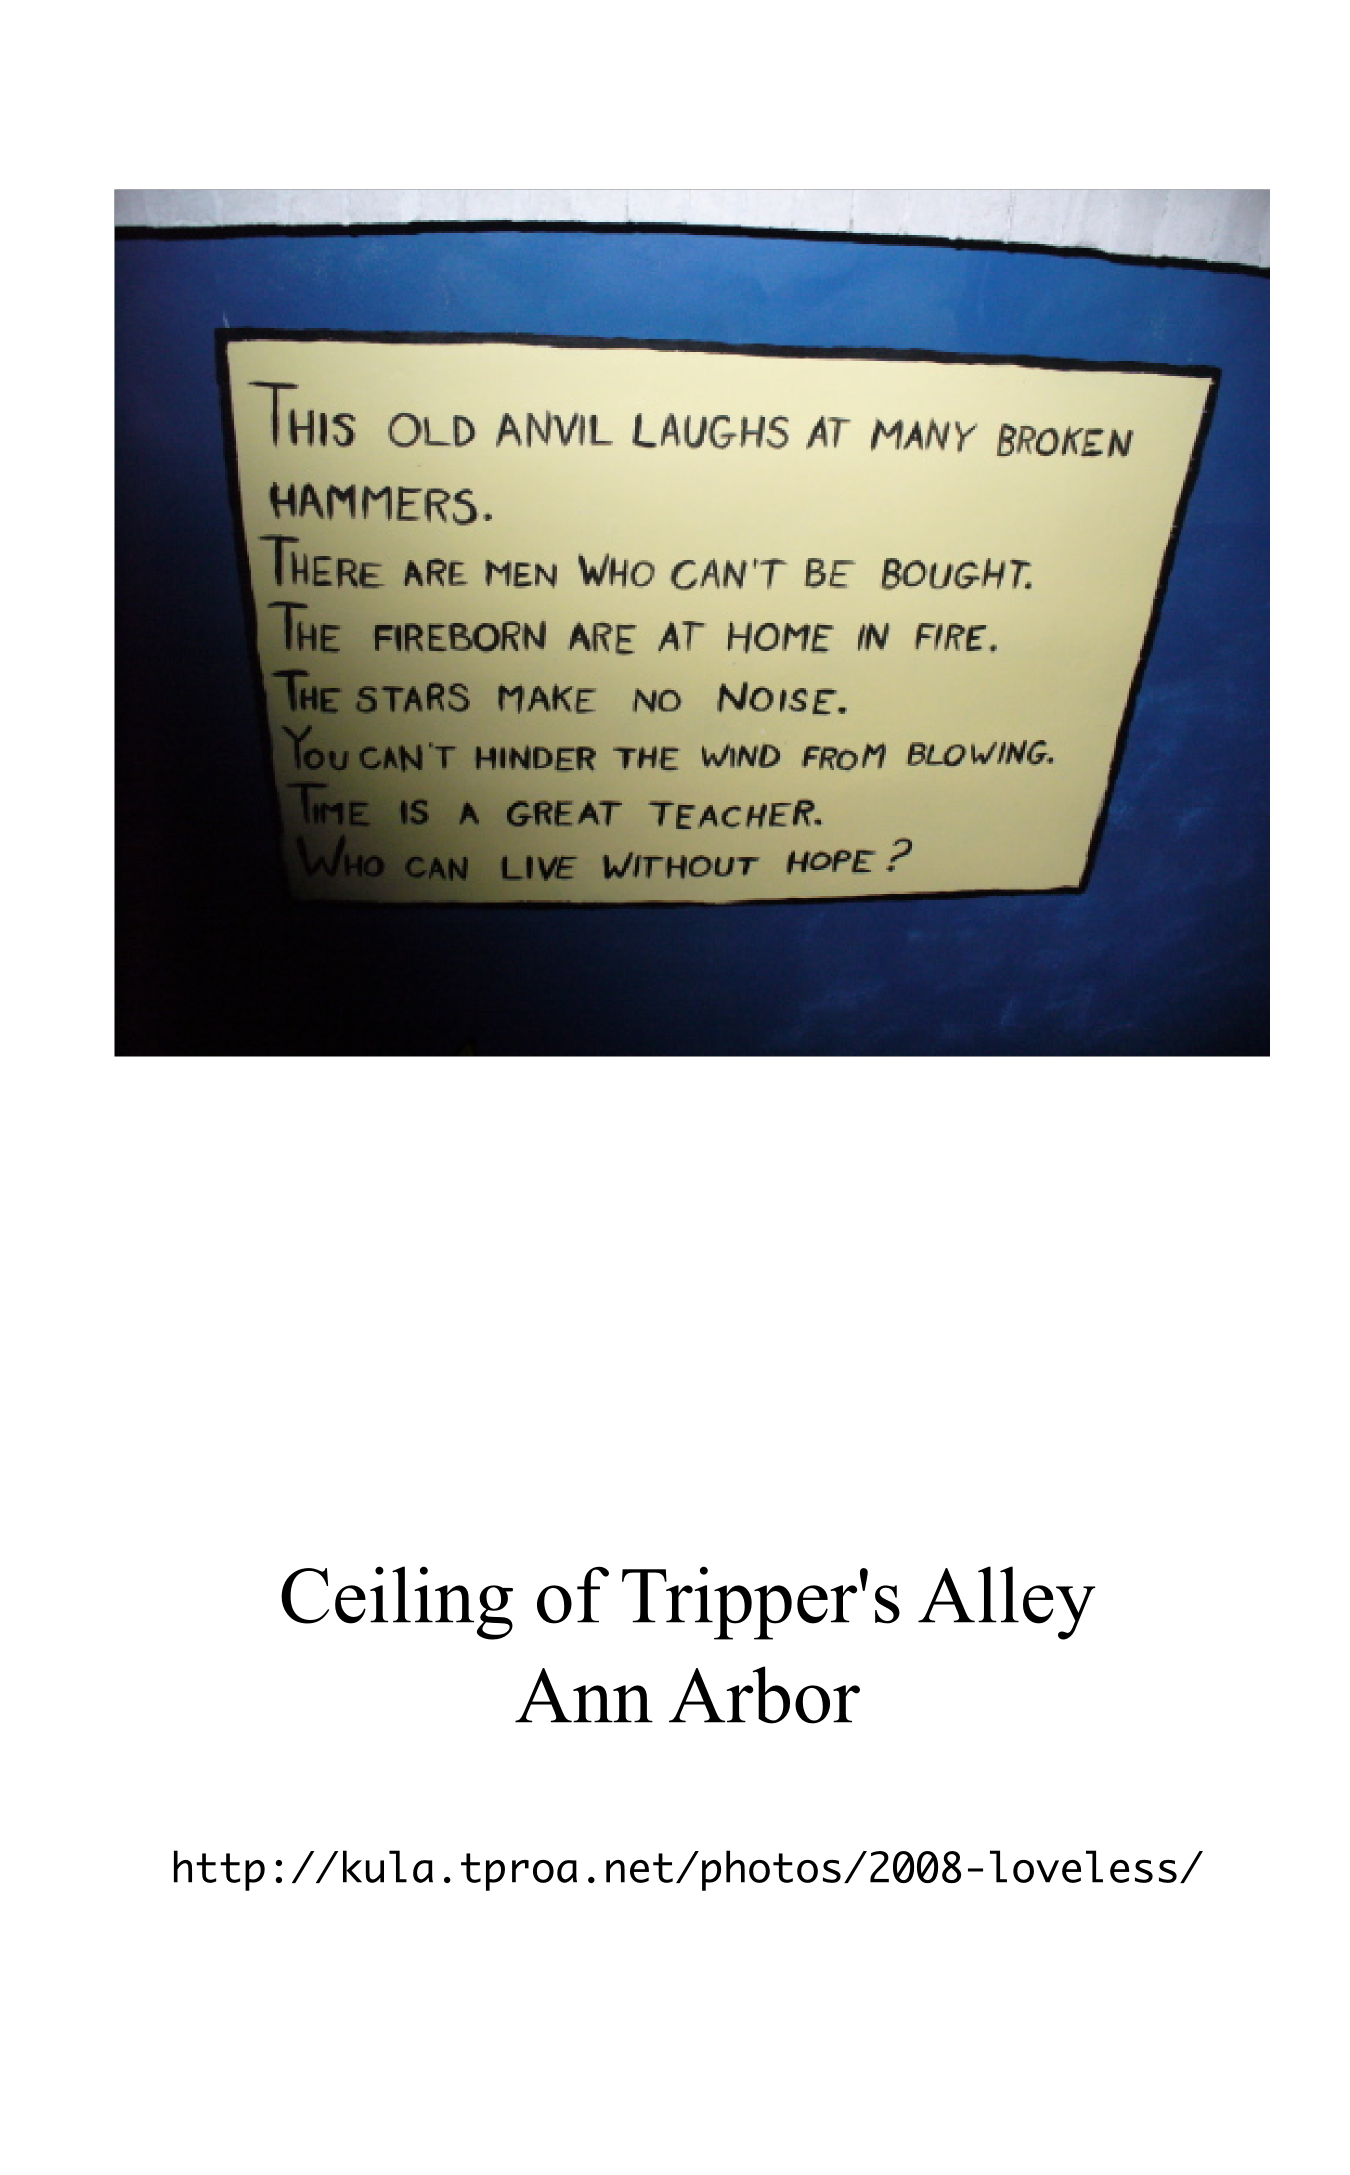 THIS OLD ANVIL LAUGHS AT MANY BROKEN
HAMMERS.
THERE ARE MEN WHO CAN'T BE BOUGHT.
THE FIREBORN ARE AT HOME IN FIRE.
THE STARS MAKE NO NOISE.
YOU CAN'T HINDER THE WIND FROM BLOWING.
TIME IS A GREAT TEACHER.
WHO CAN LIVE WITHOUT HOPE?
Ceiling of Tripper's Alley
Ann Arbor
http://kula.tproa.net/photos/2008-loveless/